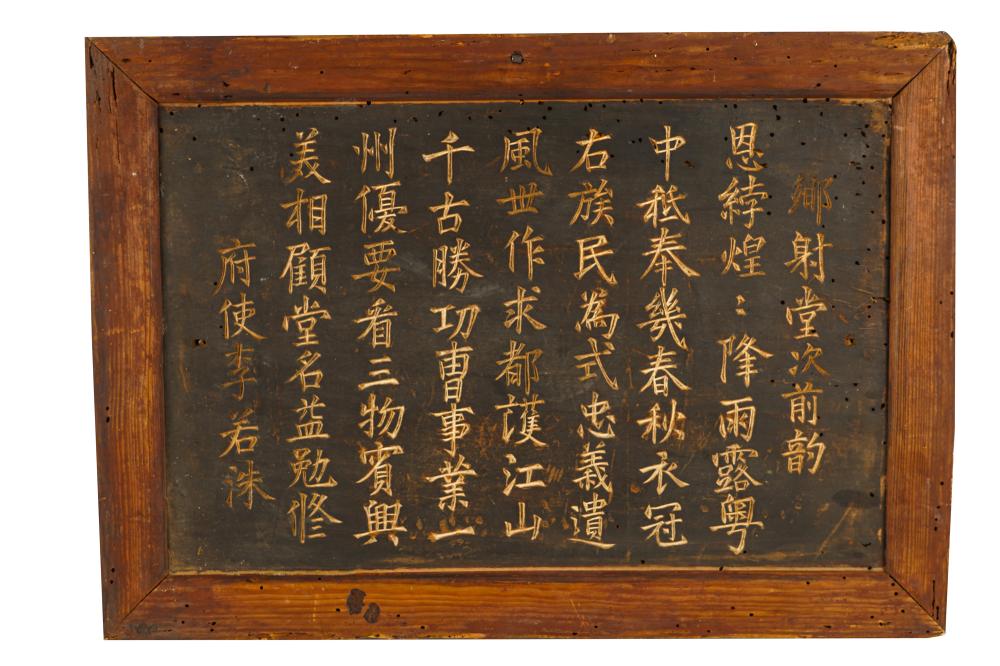 鄉射堂次前韵
恩綍煌〻降雨露粤
中秪奉幾春秋衣冠
右族民為式忠義遺
風世作求都護江山
千古勝功曹事業一
州優要看三物賓興
美相顧堂名益勉修
府使李若洙